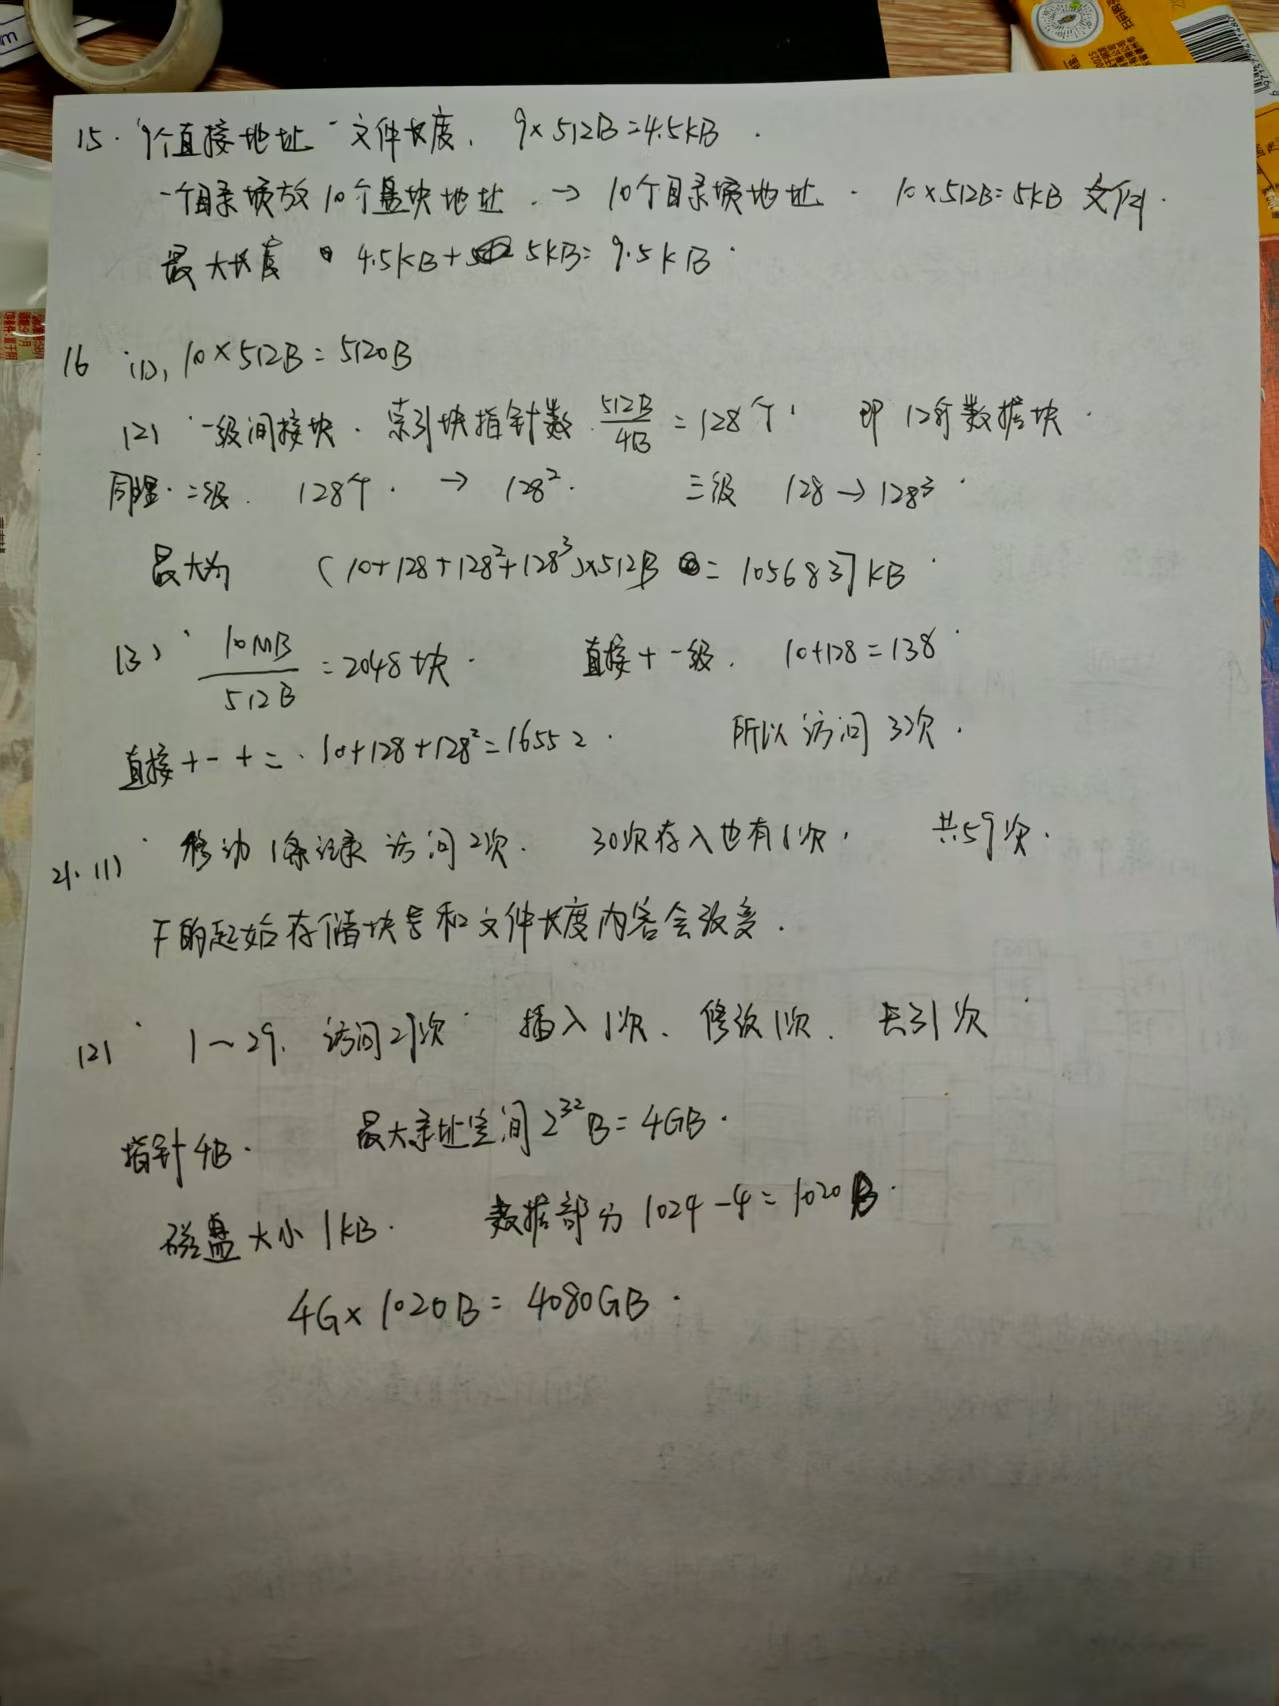 15. 9个直接地址 文件长度. 9×512B=4.5KB.
一个目录项放10个盘块地址. → 10个目录项地址. 10×512B=5KB 文件.
最大长度 4.5KB+5KB=9.5KB.
16 (1), 10×512B=5120B
(2) 一级间接块. 索引块指针数. 512B/4B =128个, 即 128个数据块.
同理. 二级. 128个. → 128². 三级 128→128³.
最大为 (10+128+128²+128³)×512B = 1056837KB
(3) 10MB/512B =2048块. 直接+一级. 10+128=138
直接+一+二. 10+128+128²=16552. 所以访问3次.
21. (1) 移动1条记录访问2次. 30次存入也有1次, 共59次.
F的起始存储块号和文件长度内容会改变.
(2) 1～29. 访问29次 插入1次、修改1次. 共31次
指针4B. 最大寻址空间2³²B=4GB.
磁盘大小1KB. 数据部分1024-4=1020B.
4G×1020B=4080GB.